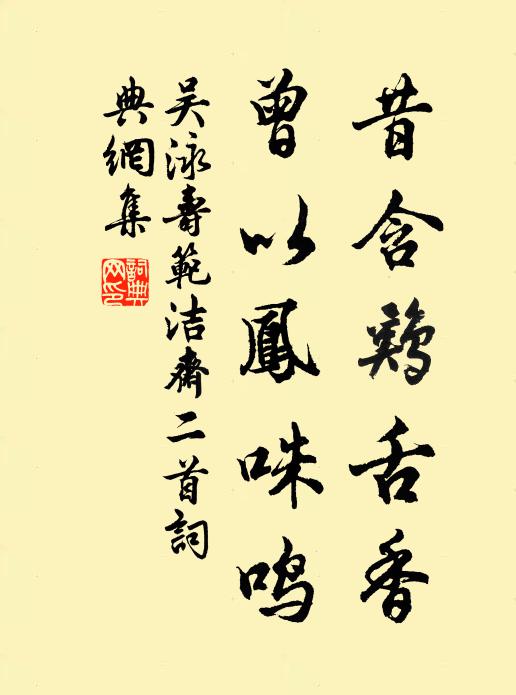 昔含鷄舌香
曾以鳳咮鳴
吴泳壽範洁齋二首詞
典網集
詞典
网印